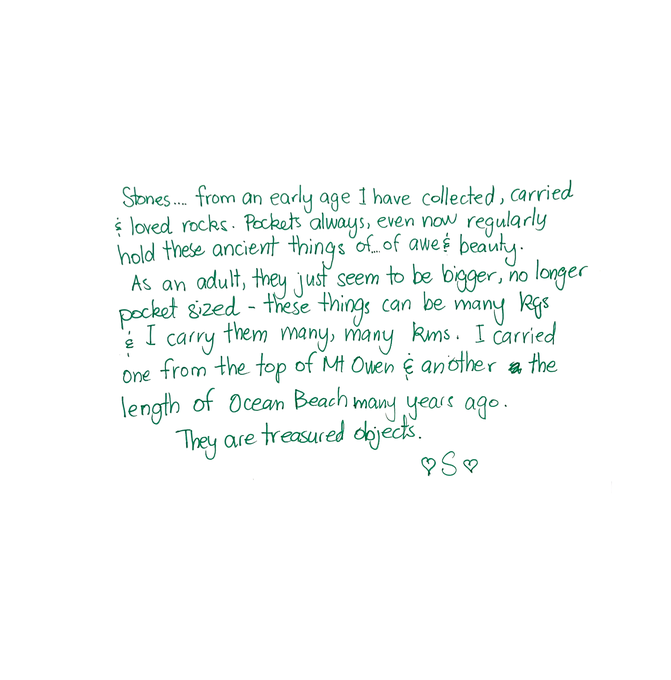 Stones.... from an early age I have collected, carried
& loved rocks. Pockets always, even now regularly
hold these ancient things of...of awe & beauty.
As an adult, they just seem to be bigger, no longer
pocket sized - these things can be many kgs
& I carry them many, many kms. I carried
one from the top of Mt Owen & another the
length of Ocean Beach many years ago.
They are treasured objects.
♡ S ♡